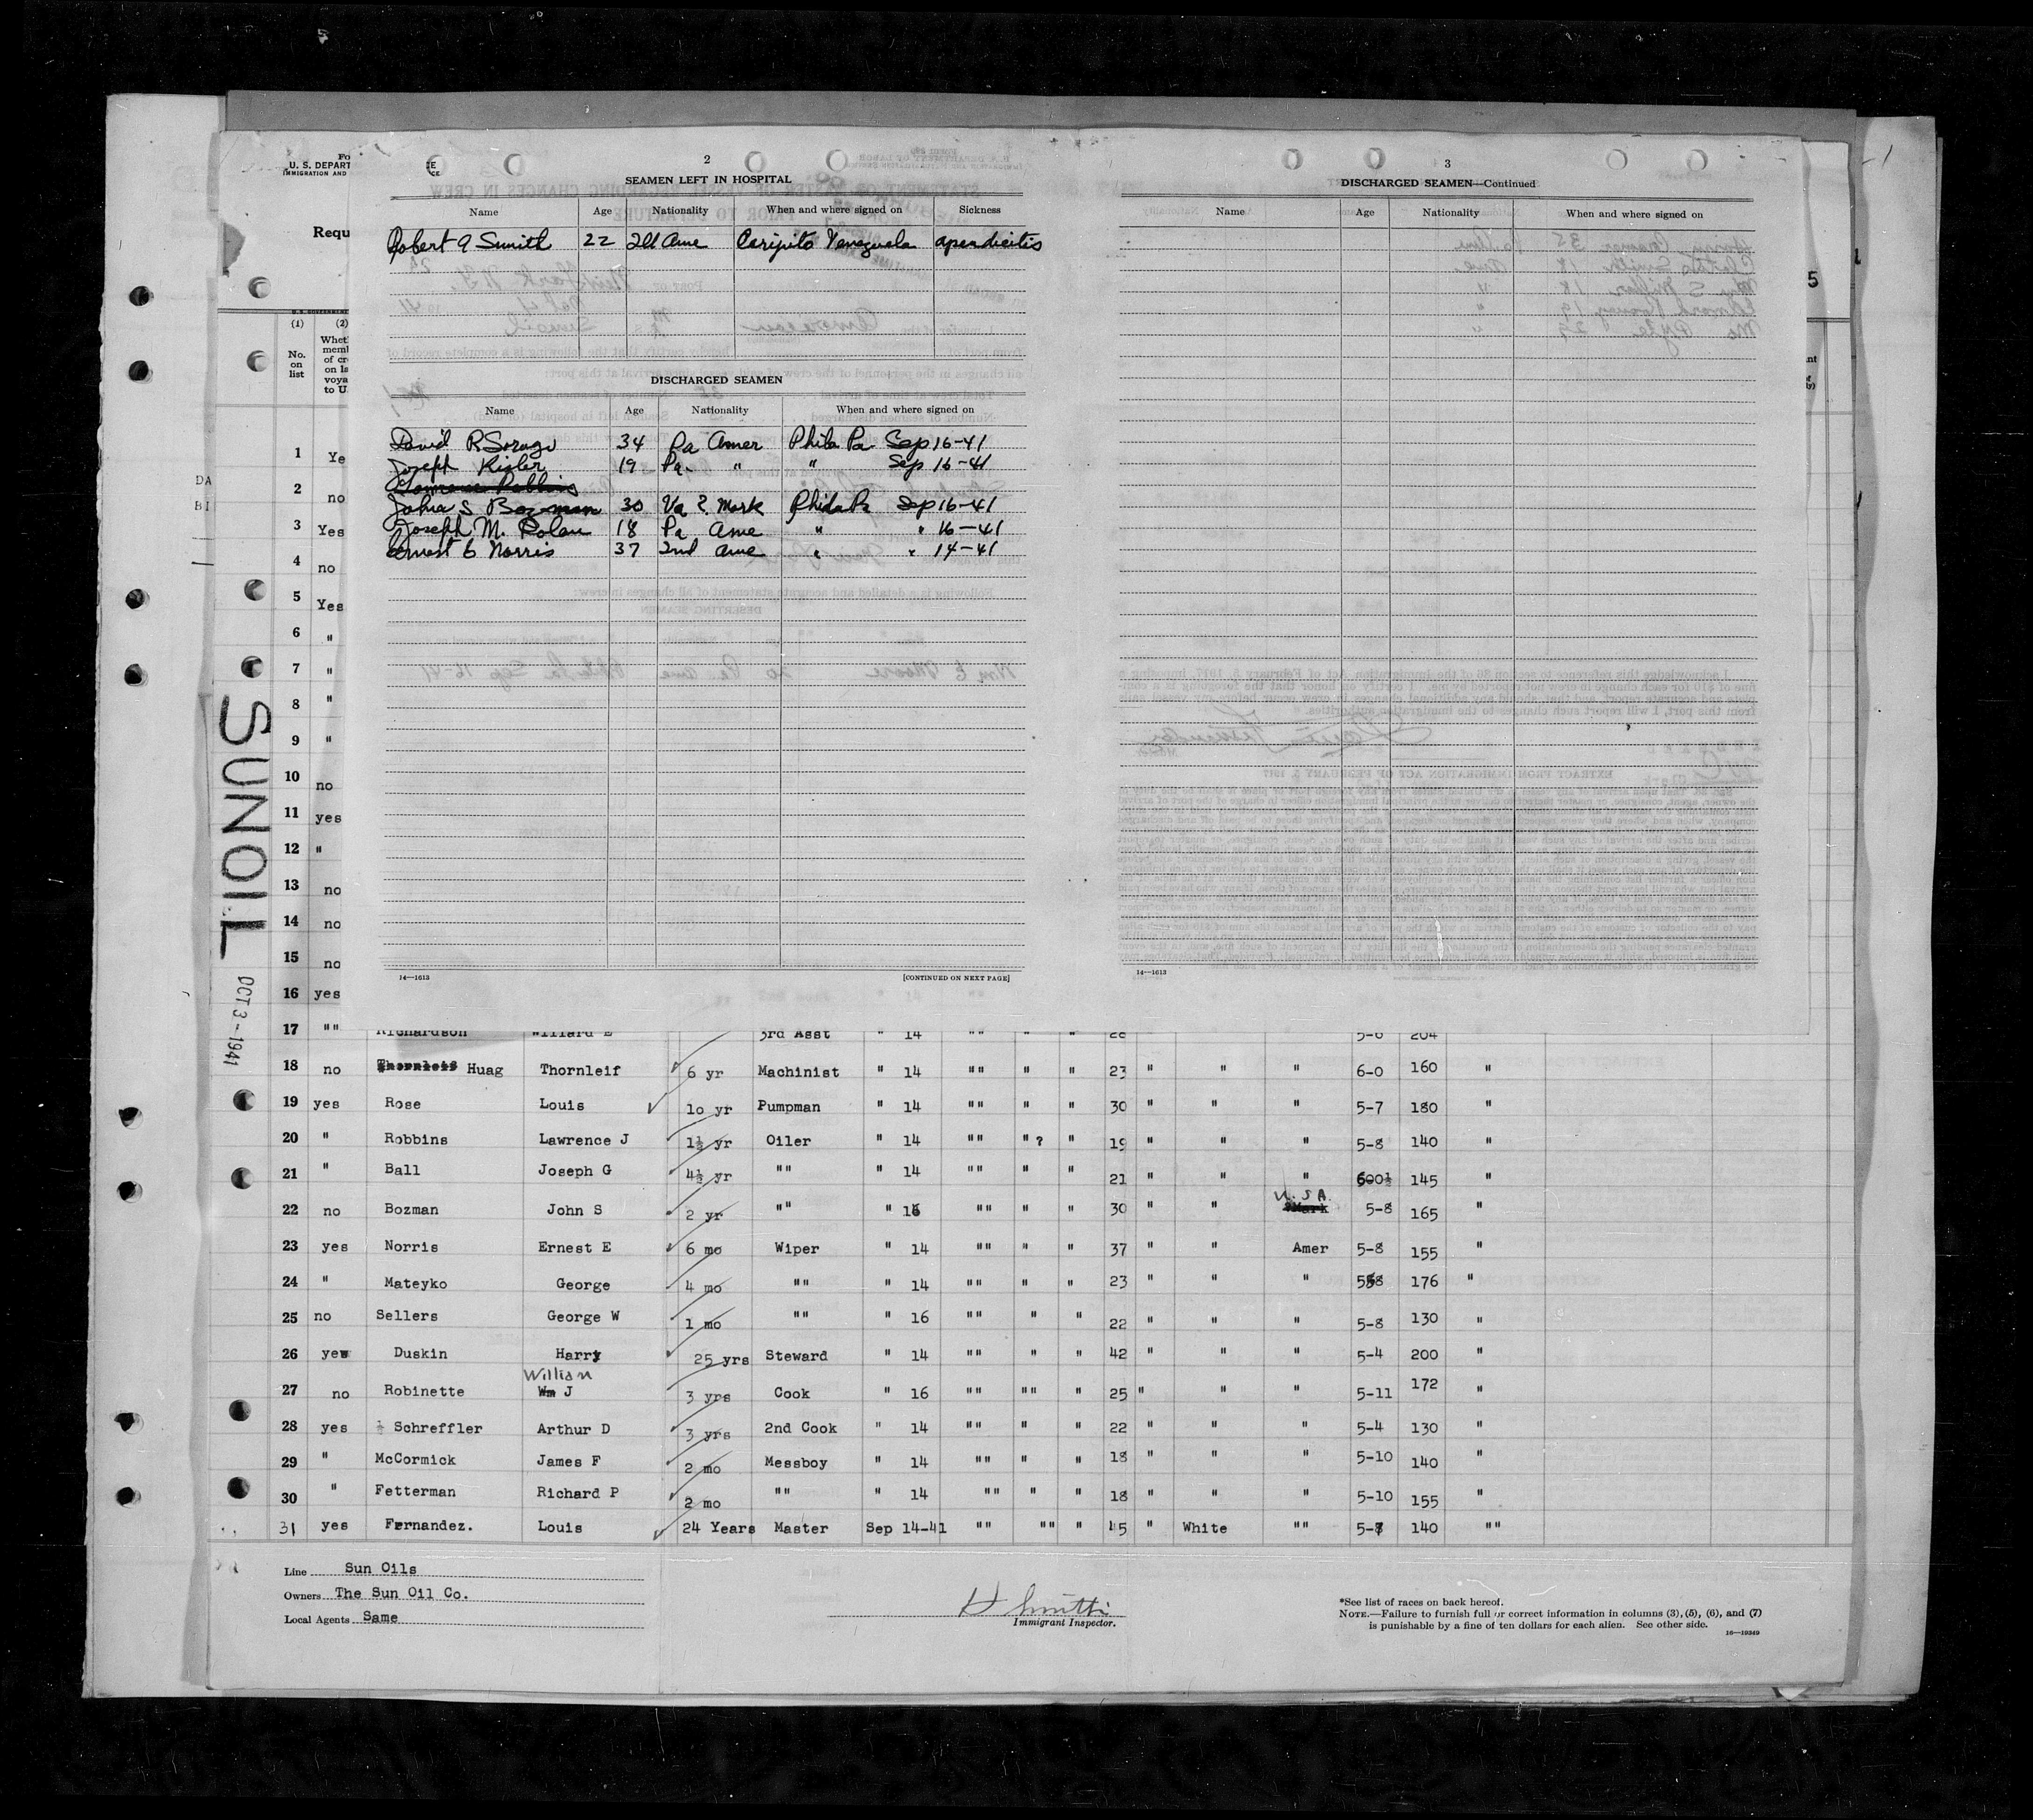 2
SEAMEN LEFT IN HOSPITAL
Name Age Nationality When and where signed on Sickness
Robert A Smith 22 Ill Ame Caripito Venezuela apendicitis
DISCHARGED SEAMEN
Name Age Nationality When and where signed on
David R 34 Pa Amer Phila Pa Sep 16-41
Joseph Kisler 19 Pa. " " Sep 16-41
Lawrence Robbins
John S Bozman 30 Va ? Mark Phila Pa Sep 16-41
Joseph M. Rolen 18 Pa Ame " " 16-41
Ernest E Norris 37 Ame " " 14-41
14—1613 [CONTINUED ON NEXT PAGE]
3
DISCHARGED SEAMEN—Continued
Name Age Nationality When and where signed on
14—1613
U. S. DEPART
IMMIGRATION AND
Requ
(1) (2)
No. on list
Whet
memb
of cr
on la
voya
to U.
1 Ye
2 no
3 Yes
4 no
5 Yes
6 "
7 "
8 "
9 "
10 no
11 yes
12 "
13 no
14 no
15 no
16 yes
17 "" Richardson Willard E 3rd Asst " 14 "" " " 28 5-6 204
18 no Thornleif Huag Thornleif 6 yr Machinist " 14 "" " " 23 " " " 6-0 160 "
19 yes Rose Louis 10 yr Pumpman " 14 "" " " 30 " " " 5-7 180 "
20 " Robbins Lawrence J 1½ yr Oiler " 14 "" " ? " 19 " " " 5-8 140 "
21 " Ball Joseph G 4½ yr "" " 14 "" " " 21 " " " 600½ 145 "
22 no Bozman John S 2 yr "" " 16 "" " " 30 " " U.S.A. 5-8 165 "
23 yes Norris Ernest E 6 mo Wiper " 14 "" " " 37 " " Amer 5-8 155 "
24 " Mateyko George 4 mo "" " 14 "" " " 23 " " " 558 176 "
25 no Sellers George W 1 mo "" " 16 "" " " 22 " " " 5-8 130 "
26 yes Duskin Harry 25 yrs Steward " 14 "" " " 42 " " " 5-4 200 "
27 no Robinette William Wm J 3 yrs Cook " 16 "" "" " 25 " " " 5-11 172 "
28 yes Schreffler Arthur D 3 yrs 2nd Cook " 14 "" " " 22 " " " 5-4 130 "
29 " McCormick James F 2 mo Messboy " 14 "" " " 18 " " " 5-10 140 "
30 " Fetterman Richard P 2 mo "" " 14 "" " " 18 " " " 5-10 155 "
31 yes Fernandez. Louis 24 Years Master Sep 14-41 "" "" " 45 " White "" 5-7 140 ""
SUNOIL
OCT 3-1941
Line Sun Oils
Owners The Sun Oil Co.
Local Agents Same
H Smith
Immigrant Inspector.
*See list of races on back hereof.
NOTE.—Failure to furnish full or correct information in columns (3), (5), (6), and (7)
is punishable by a fine of ten dollars for each alien. See other side.
16—19349